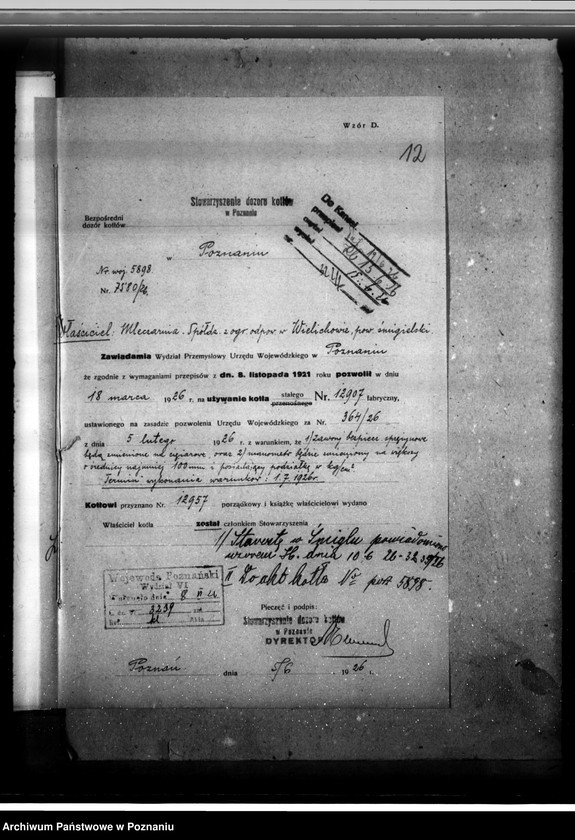 Wzór D.
12
Stowarzyszenie dozoru kotłów
w Poznaniu
Bezpośredni
dozór kotłów
w Poznaniu
Nr. woj. 5898.
Nr. 7580/26.
Do Kancel.
przepisał
czytał
wysłał
Właściciel: Mleczarnia Spółdz. z ogr. odpow. w Wielichowie, pow. śmigielski.
Zawiadamia Wydział Przemysłowy Urzędu Wojewódzkiego w Poznaniu
że zgodnie z wymaganiami przepisów z dn. 8. listopada 1921 roku pozwolił w dniu
18 marca 1926 r. na używanie kotła stałego przenośnego Nr. 12907 fabryczny,
ustawionego na zasadzie pozwolenia Urzędu Wojewódzkiego za Nr. 364/26
z dnia 5 lutego 1926 r. z warunkiem, że 1/ zawory bezpiecz. sprężynowe
będą zmienione na ciężarowe, oraz 2/ manometr będzie zmieniony na większy
o średnicy najmniej 100 mm i posiadający podziałkę w kg/cm²
Termin wykonania warunków: 1.7.1926 r.
Kotłowi przyznano Nr. 12957 porządkowy i książkę właścicielowi wydano
Właściciel kotła został członkiem Stowarzyszenia
1/ Starostę w Śmiglu powiadomiono
wzorem H. dnia 10 6 26 - 3239/26
II Do akt kotła Nº port 5898.
Wojewoda Poznański
Wydział VI
dnia 8 VI 26
3239
Pieczęć i podpis:
Stowarzyszenie dozoru kotłów
w Poznaniu
DYREKTOR
Poznań dnia 5/6 1926 r.
Archiwum Państwowe w Poznaniu